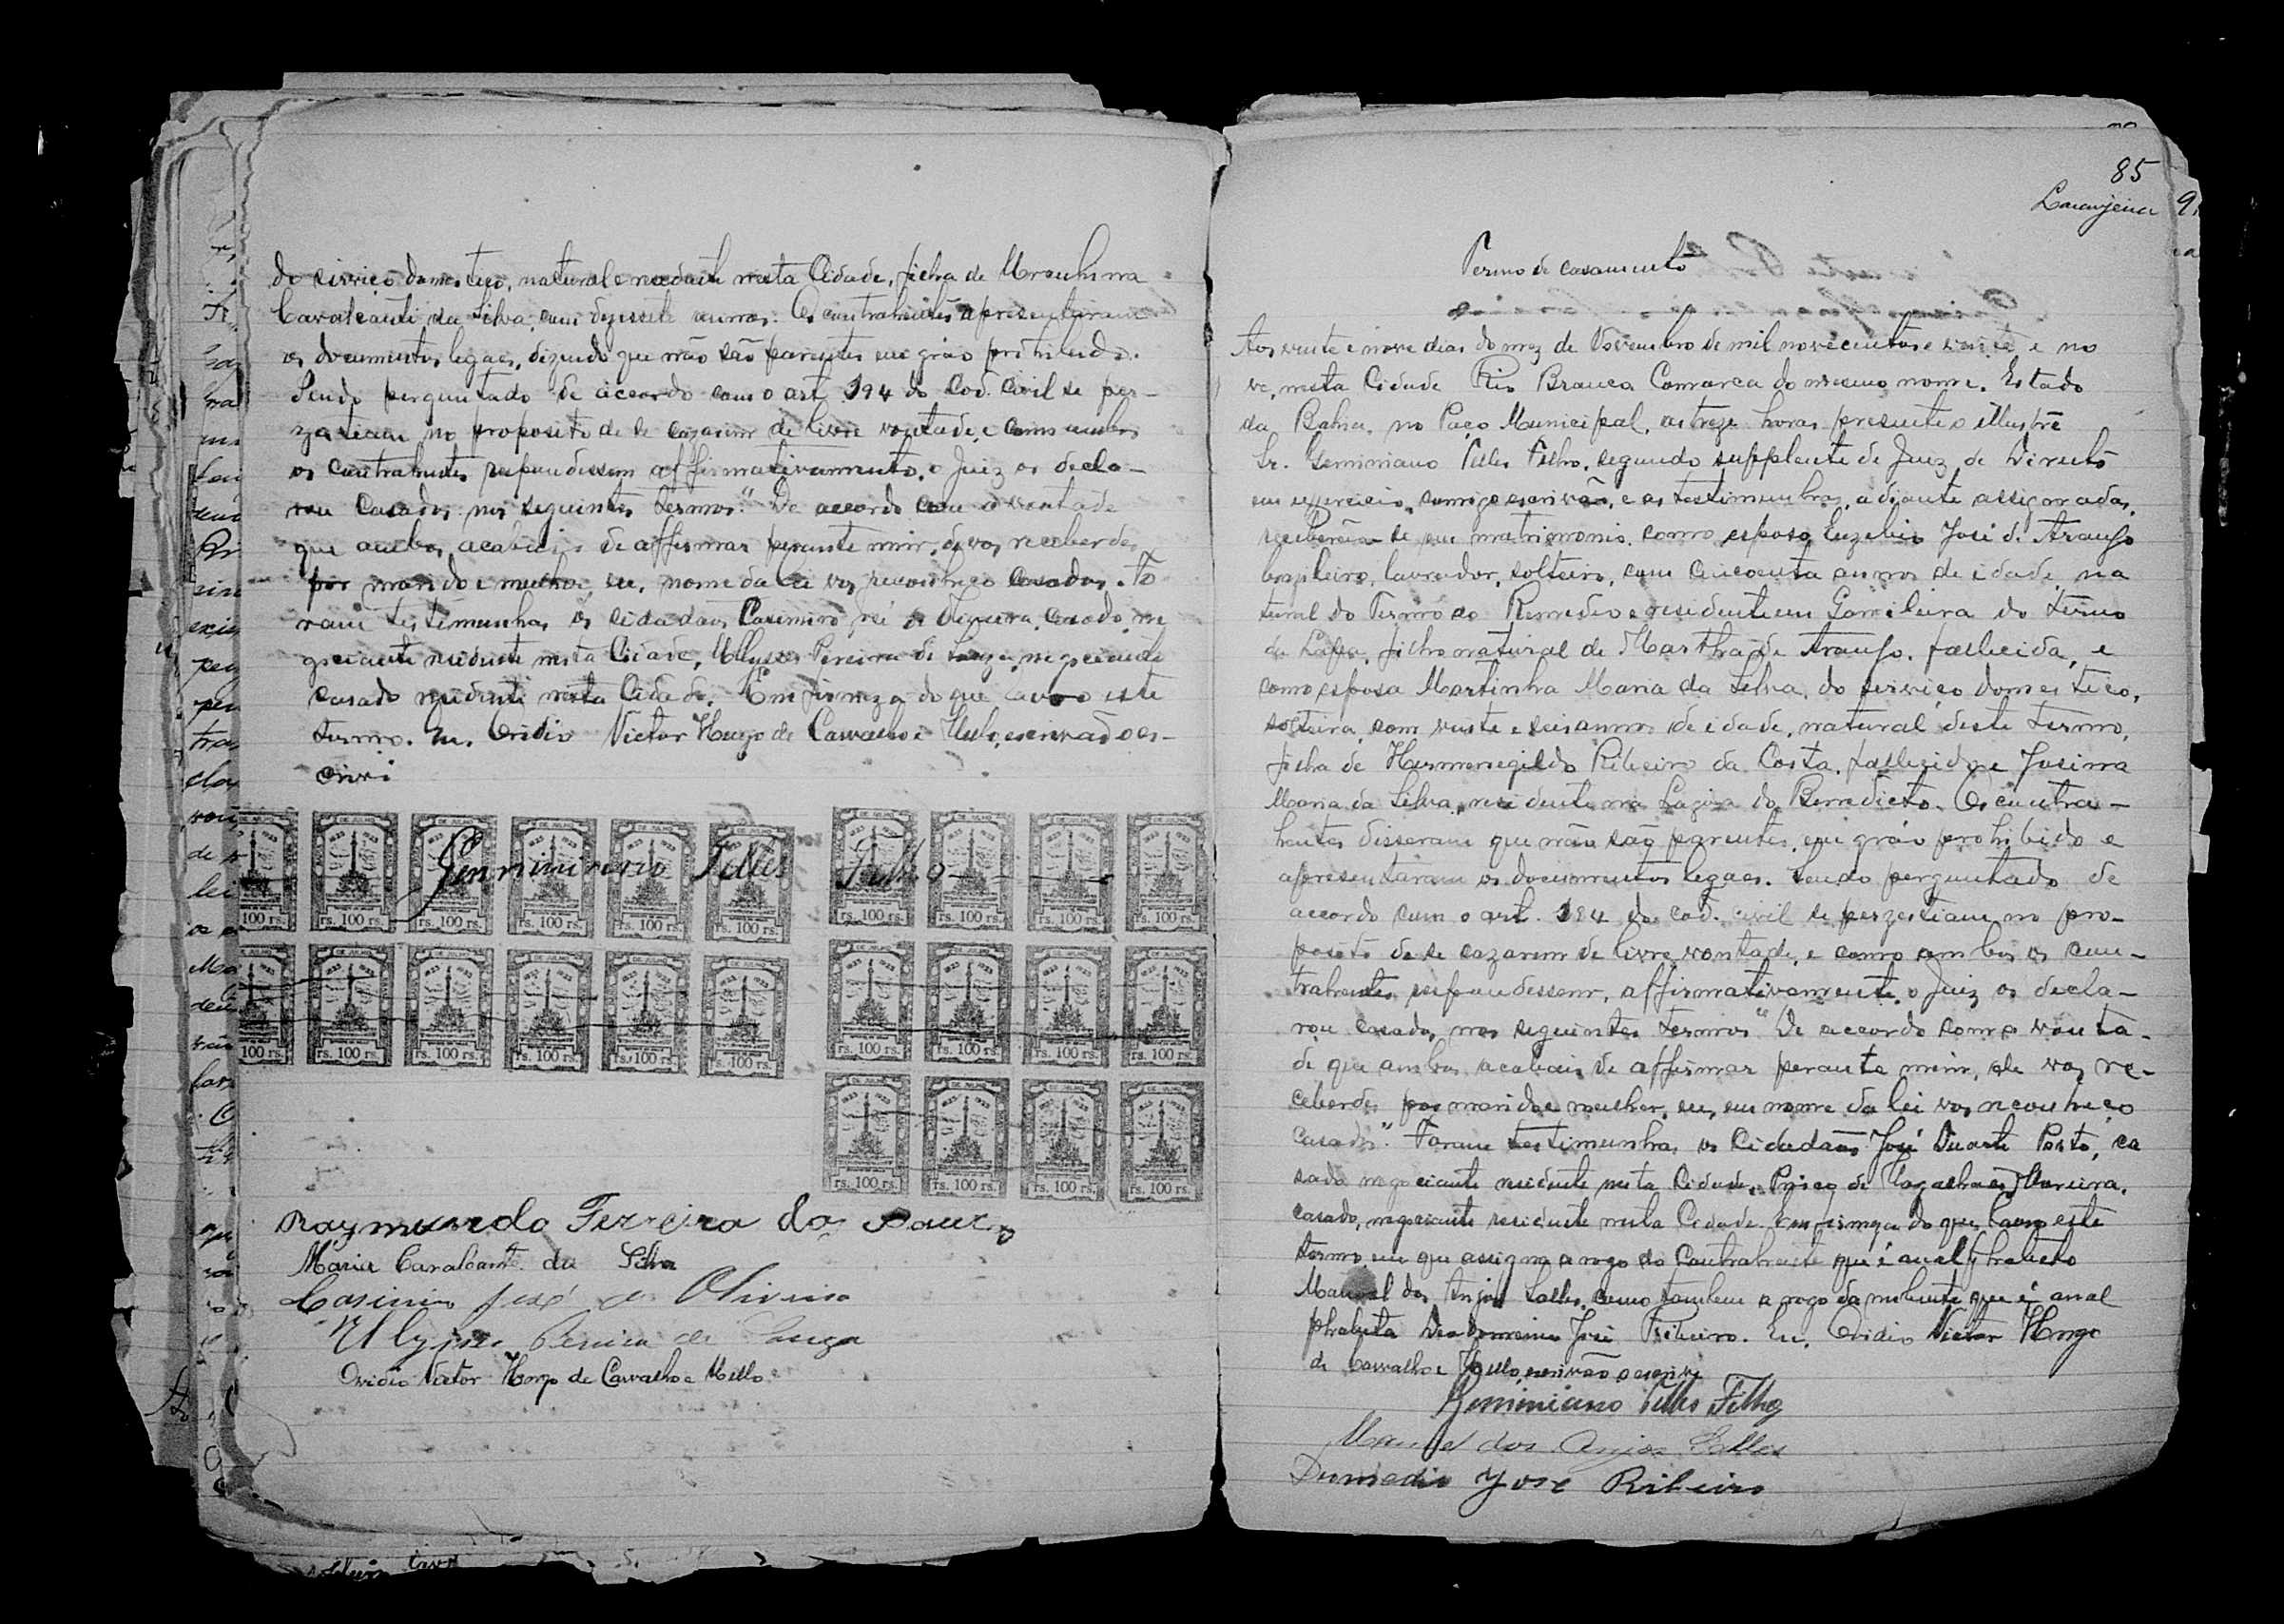 do serviço domestico, natural e residente nesta Cidade, filha de
Cavalcanti da Silva, com dezessete annos. Os contrahentes apresentaram
os documentos legaes, dizendo que não são parentes em gráo prohibido.
Sendo perguntado de accordo com o art. 194 do Cod. Civil se per-
zestiam no proposito de se cazarem de livre vontade, e como ambos
os contrahentes respondessem affirmativamente, o Juiz os decla-
rou casados nos seguintes termos: "De accordo com a vontade
que ambos acabais de affirmar perante mim, de vos receberdes
por marido e mulher, eu, nome da lei vos reconheço casados. Fo
ram testemunhas os cidadãos Casimiro José de Oliveira, casado, ne
gociante residente nesta Cidade, Ullysses Pereira de Souza, negociante
casado residente nesta Cidade. Em firmeza do que lavro este
termo. Eu, Ovidio Victor Hugo de Carvalho e Mello, escrivão es-
crivi
Geminiano Telles Filho
2 DE JULHO
1823 1923
rs. 100 rs.
Raymundo Ferreira dos
Maria Cavalcante da Silva
Casimiro José de Oliveira
Ulysses Pereira de Souza
Ovidio Victor Hugo de Carvalho e Mello
85
Laranjeira
Termo de casamento
Aos vinte e nove dias do mez de Novembro de mil novecentos e vinte e no
ve, nesta Cidade Rio Branco Comarca do mesmo nome, Estado
da Bahia, no Paço Municipal, as treze horas presente o illustre
Sr. Geminiano Telles Filho, segundo supplente de Juiz de Direito
em exercicio, comigo escrivão, e as testimunhas, adiante assignadas,
receberão-se em matrimonio, como esposo Euzebio José de Araujo
brazileiro, lavrador, solteiro, com cincoenta annos de idade, na
tural do Termo do Remedio e residente em Gamileira do termo
da Lapa, filho natural de Martha de Araujo, fallecida, e
como esposa Martinha Maria da Silva, do serviço domestico,
solteira, com vinte e seis annos de idade, natural deste termo,
filha de Hermenegildo Ribeiro da Costa, fallecido e Josina
Maria da Silva, residente na Lagoa do Benedicto. Os contra-
hentes disseram que não são parentes, em gráo prohibido e
apresentaram os documentos legaes. Sendo perguntado de
accordo com o art. 194 do cod. civil se perzestiam no pro-
posito de se cazarem de livre vontade, e como ambos os con-
trahentes respondessem, affirmativamente, o Juiz os decla-
rou casados nos seguintes termos "De accordo com a vonta-
de que ambos acabais de affirmar perante mim, de vos re-
ceberdes por marido e mulher, eu, em nome da lei vos reconheço
casados". Foram testimunhas os Cidadãos José Duarte Porto, ca
sado negociante residente nesta Cidade, Prisco de Magalhães Moreira,
casado, negociante residente nesta Cidade. Em firmeza do que lavro este
termo em que assigna a rogo do Contrahente que é analphabeto
Manoel dos Anjos Salles, como tambem a rogo da nubente que é anal
phabeta José Ribeiro. Eu, Ovidio Victor Hugo
de Carvalho e Mello, escrivão o escrivi
Geminiano Telles Filho
Manoel dos Anjos Salles
José Ribeiro